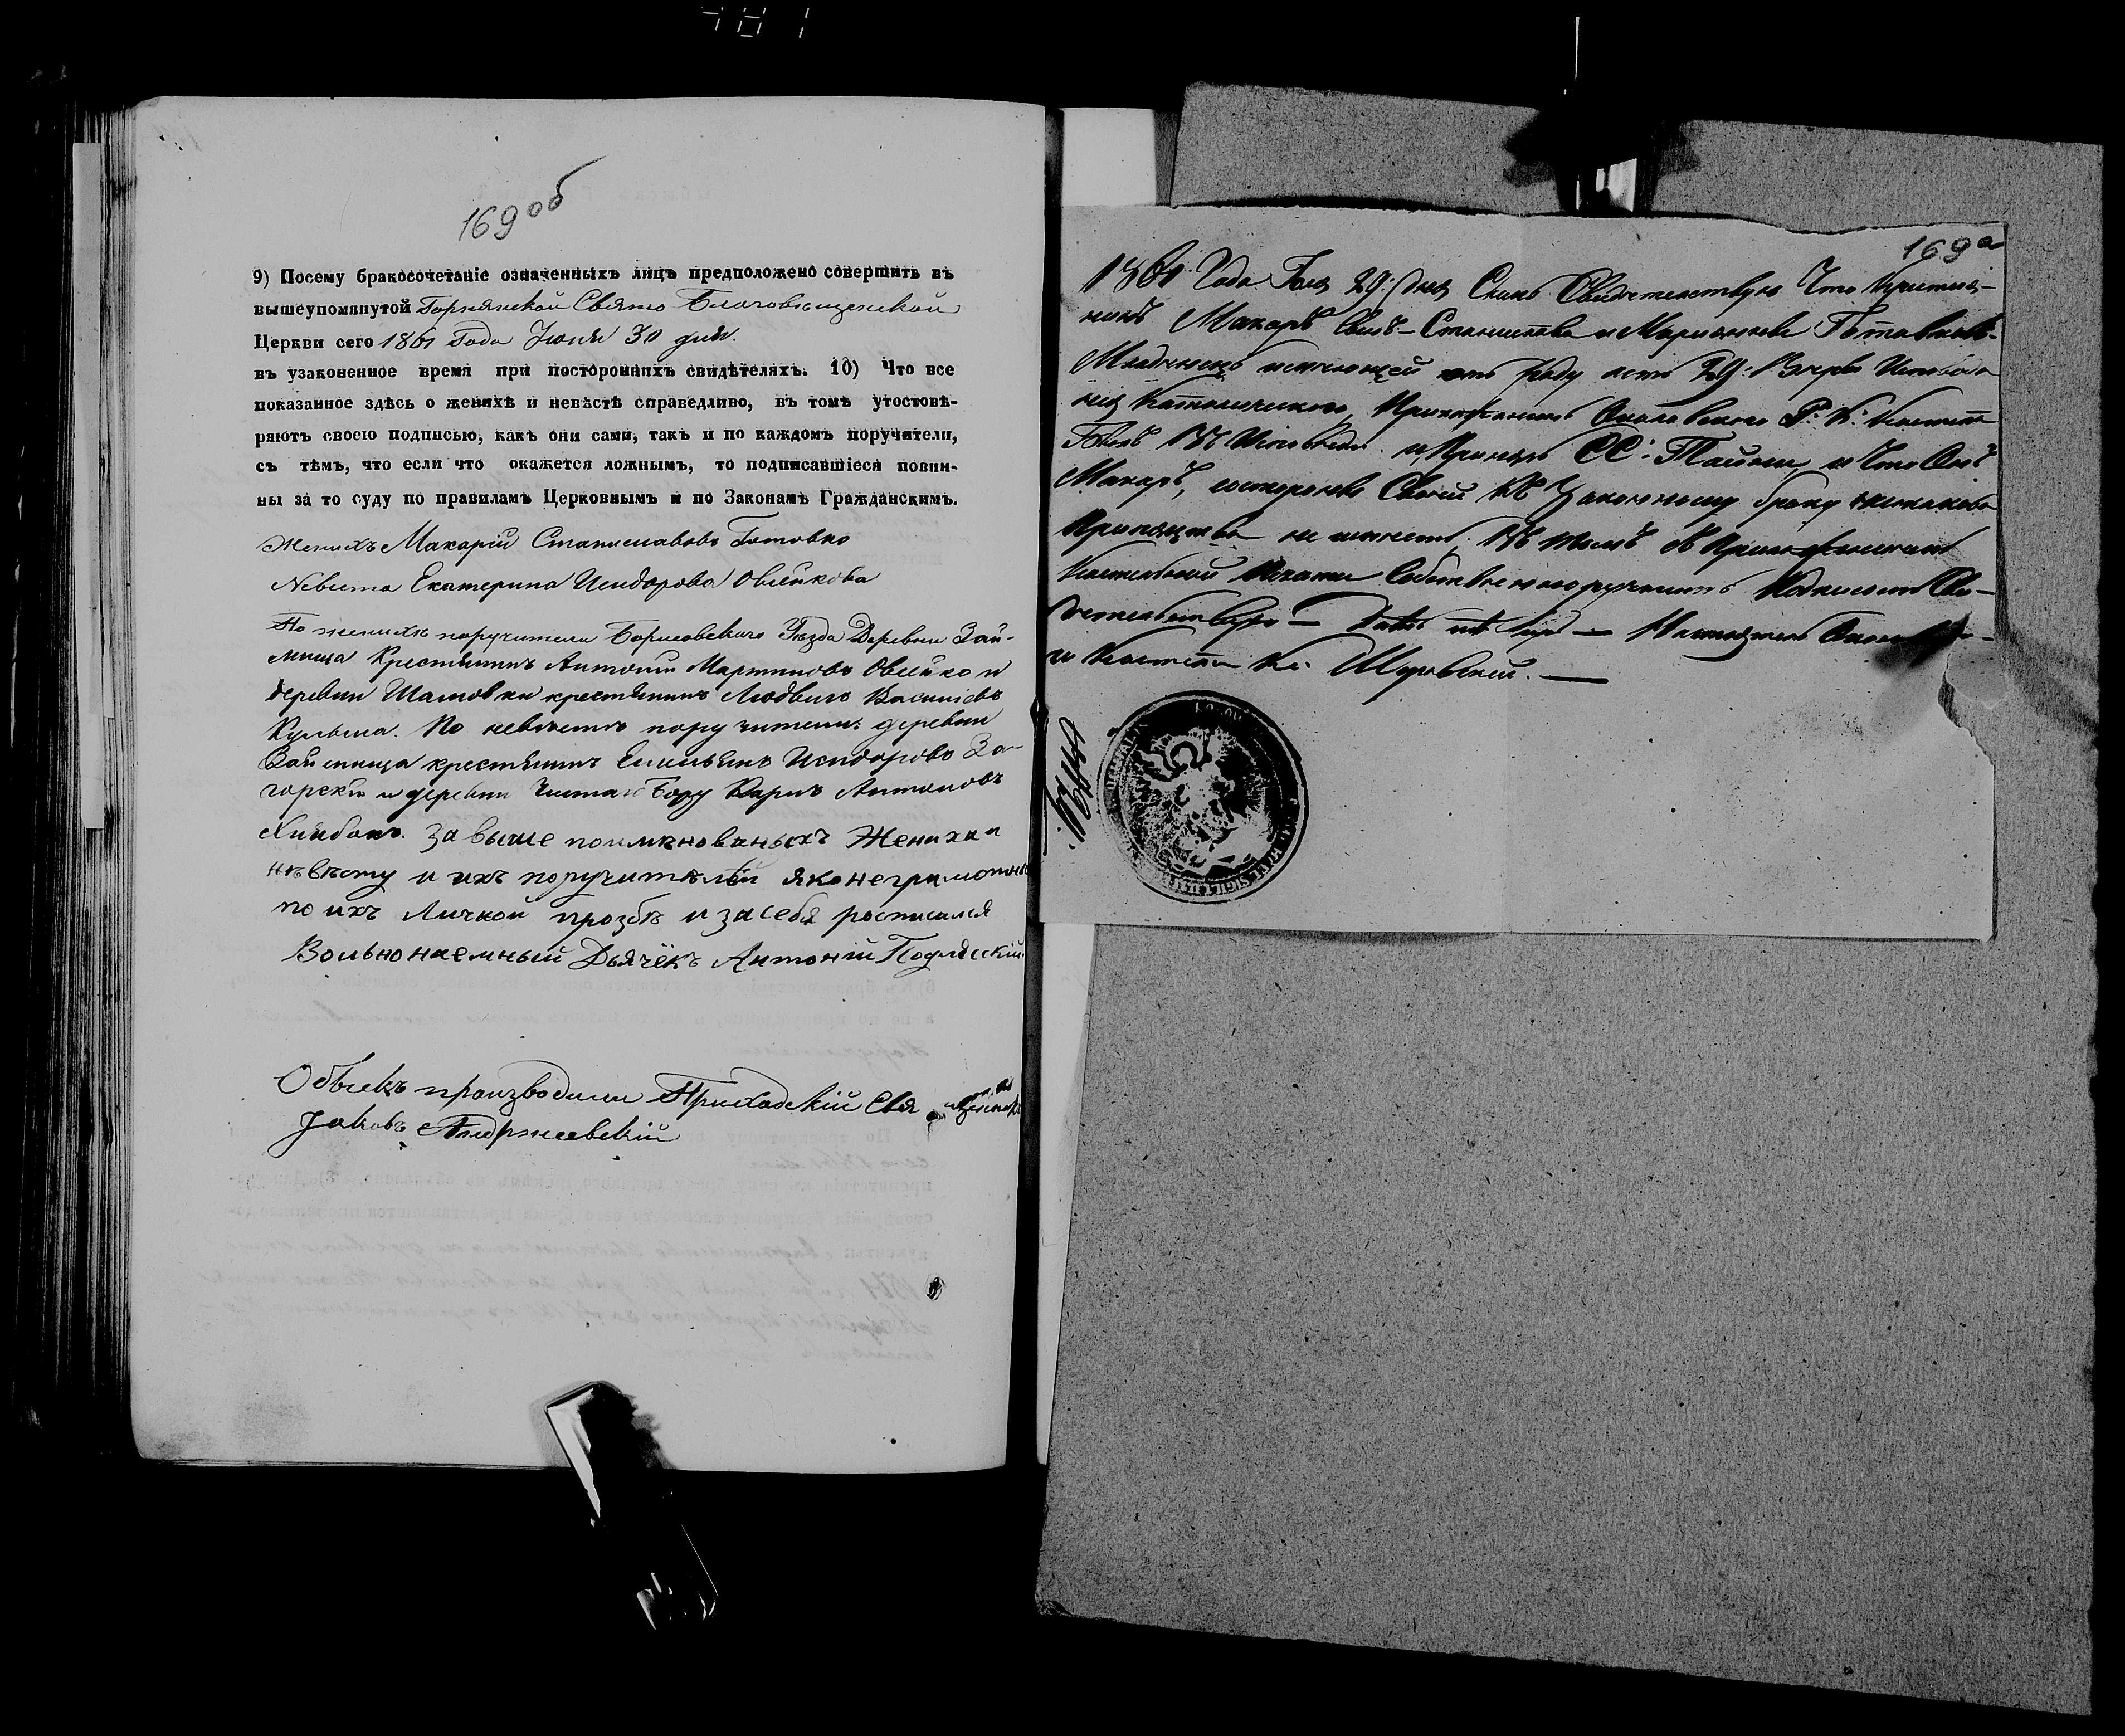 169 об
9) Посему бракосочетаніе означенныхъ лицъ предположено совершить въ
вышеупомянутой Горнянской Свято Благовѣщенской
Церкви сего 1861 Года Июня 30 дня.
въ узаконенное время при постороннихъ свидѣтеляхъ. 10) Что все
показанное здѣсь о женихѣ и невѣстѣ справедливо, въ томъ утостовѣ-
ряютъ своею подписью, какъ они сами, такъ и по каждомъ поручители,
съ тѣмъ, что если что окажется ложнымъ, то подписавшіеся повин-
ны за то суду по правиламъ Церковнымъ и по Законамъ Гражданскимъ.
Женихъ Макарій Станиславовъ Готовко
Невѣста Екатерина Исидорова Овсейкова
По женихѣ поручители Борисовскаго Уѣзда Деревни Зай-
мища Крестьянинъ Антоній Мартиновъ Овсейко и
деревни Шамовки крестьянинъ Людвигъ
Кульма. По невѣстѣ поручители: деревни
Займища крестьянинъ Емильянъ Исидоровъ За-
горскій и деревни Чиста Бору Карпъ Антоновъ
За выше поимянованыхъ Жениха и
невѣсту и ихъ поручителей яко неграмотны
по ихъ Личной прозбѣ и за себя росписался
Вольнонаемный Дьячёкъ Антоній Подлѣсскій
Обыскъ производили Приходскій Свя
Іаковъ
169 а
1861 Года 29: дня Симъ Свидѣтельствую Что Крестья-
нинъ Макаръ Сынъ Станислава и Маріанны
отъ роду лѣтъ 29: Вѣры Исповѣда
нія Католическаго, Прихожанинъ Р: К: Костела
Былъ На Исповѣди и СС: Тайны, и Что Онъ
Макаръ, состороны Своей Къ Законному браку никакова
Препятства не имѣетъ. Въ томъ съ
Костельной Печати Подписомъ Сви-
детельствую — — Настоятель
Костела Кс: